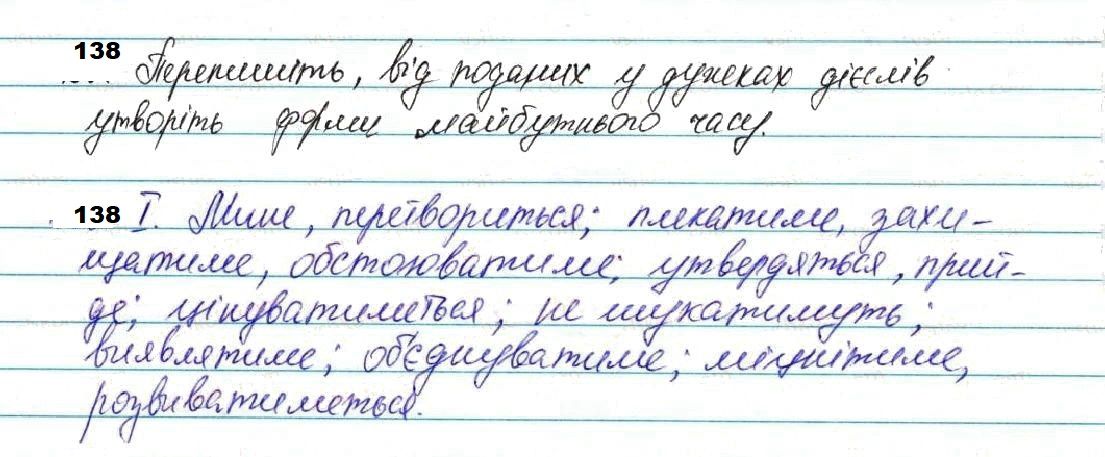 138 Перепишіть, від поданих у дужках дієслів
утворіть форми майбутнього часу.
138 I. Мине, перетвориться; плекатиме, захи-
щатиме, обстоюватиме; утвердяться, прий-
де; цінуватиметься; не шукатимуть;
виявлятиме; об'єднуватиме; міцнітиме,
розвиватиметься.